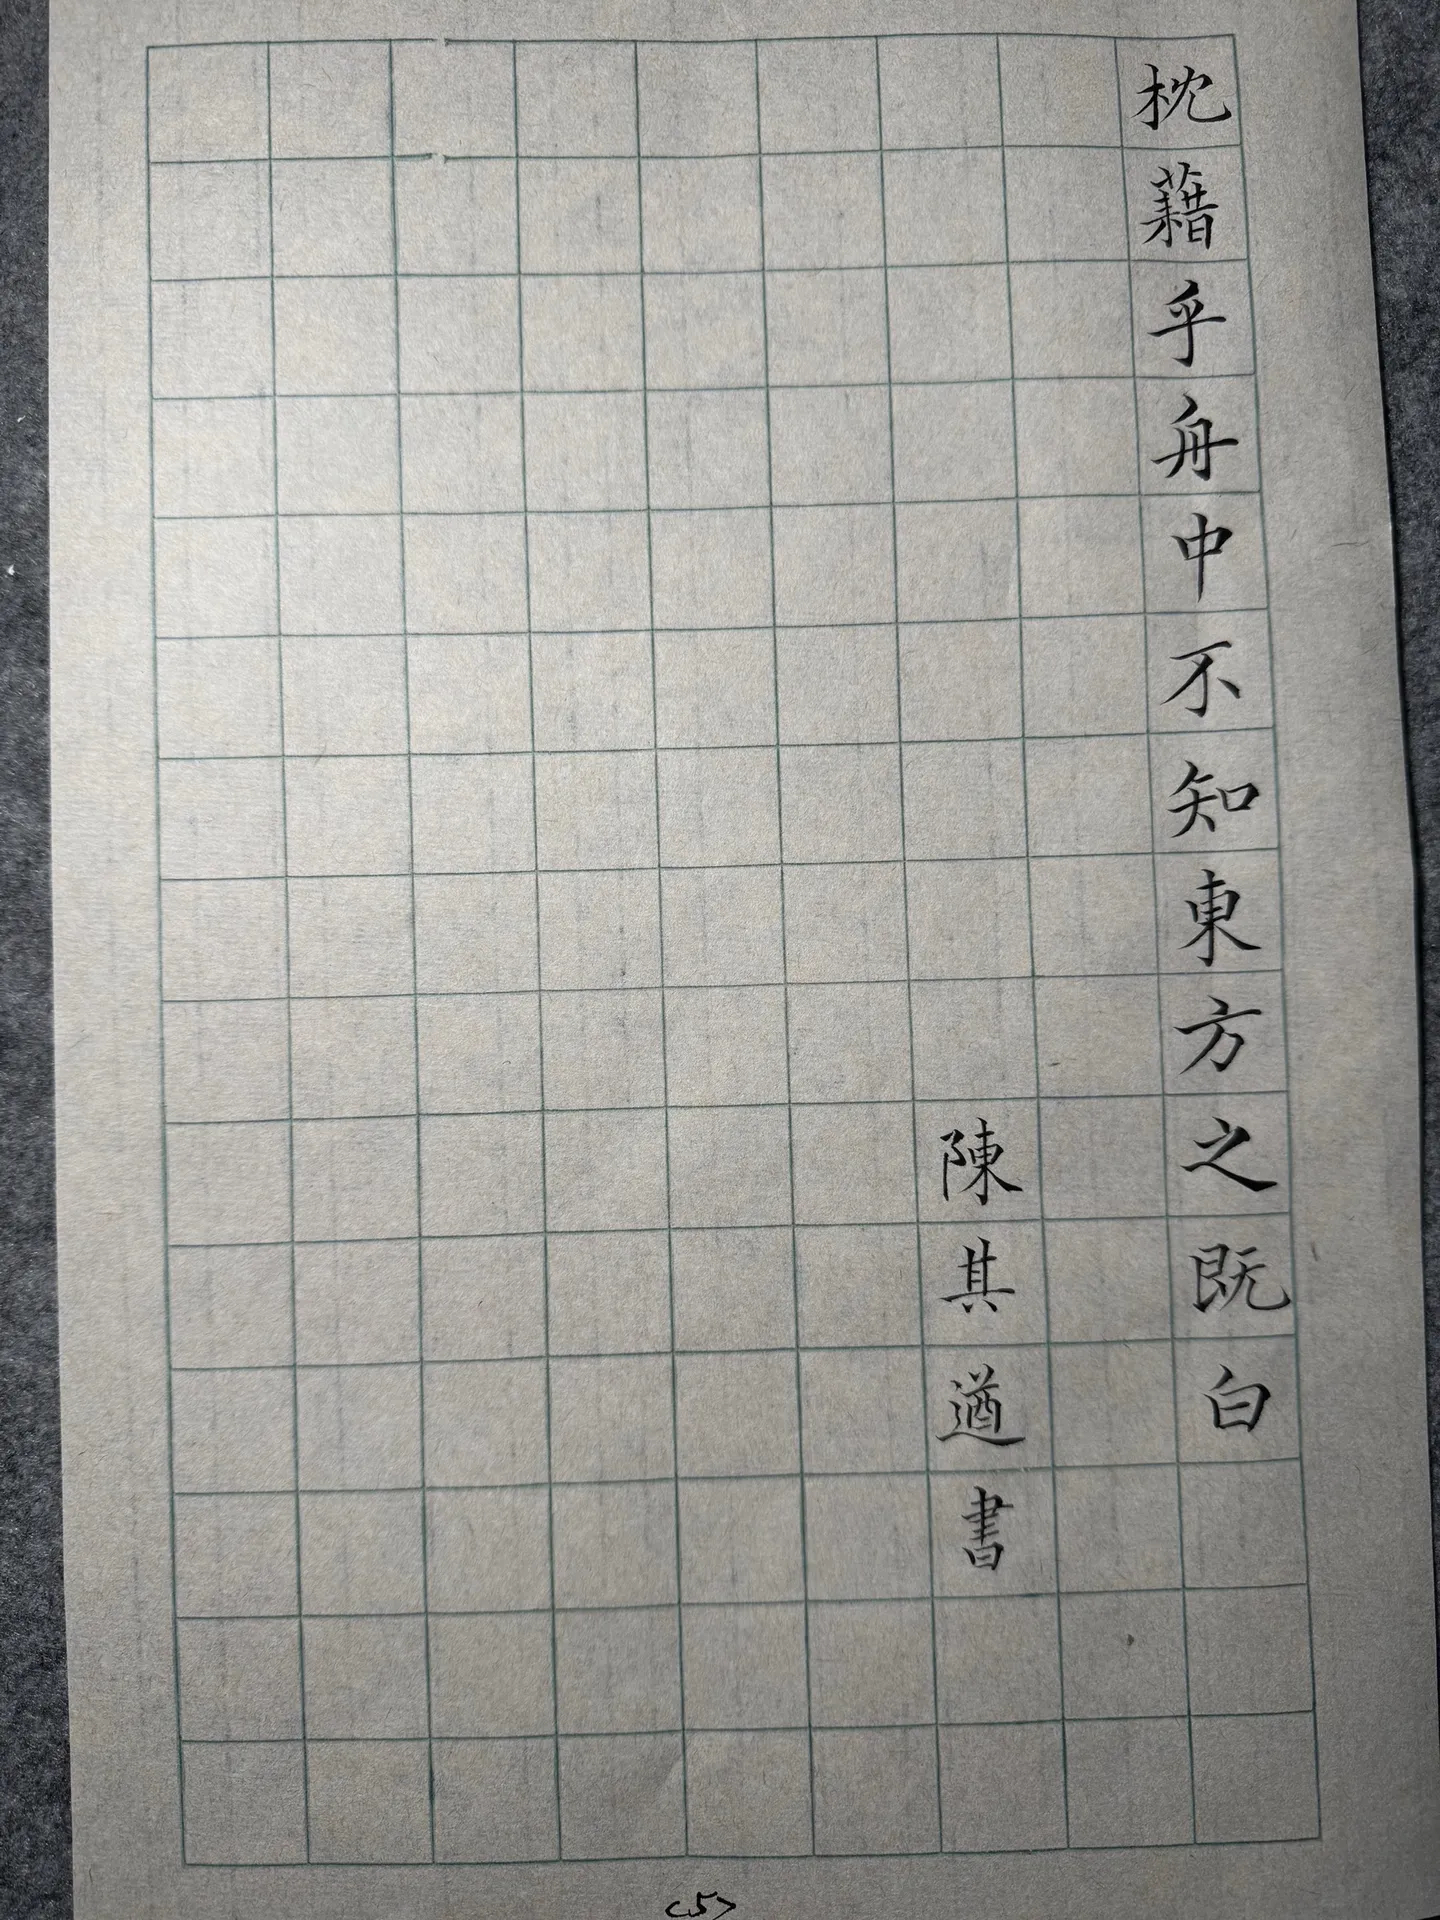 枕藉乎舟中不知東方之既白
陳其遒書
<5>